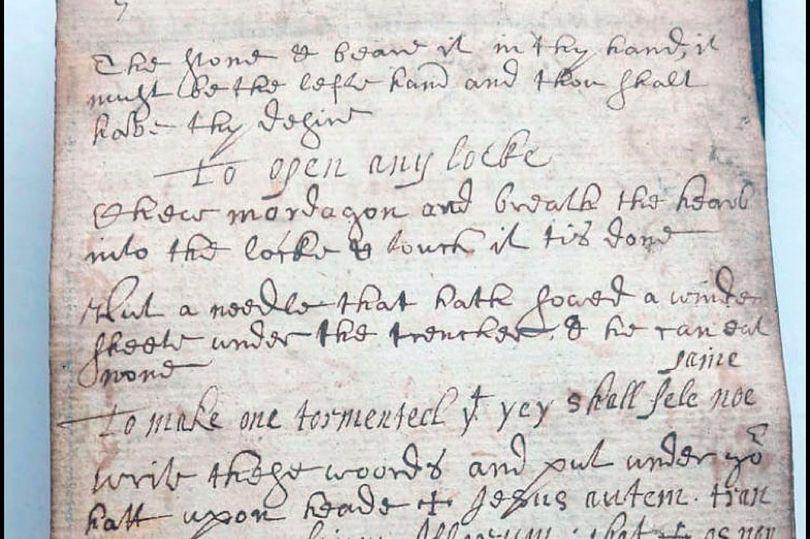 The stone & beare it in thy hand, it
must be the lefte hand and thou shalt
have thy desire
To open any locke
Chew mordagon and breath the hearb
into the locke & touch it tis done
Put a needle that hath sowed a winden
sheete under the trencher & he can eat
none
To make one tormented yt yey shall fele noe
paine
write these woords and put under yor
hatt upon heade + Jesus autem . tran